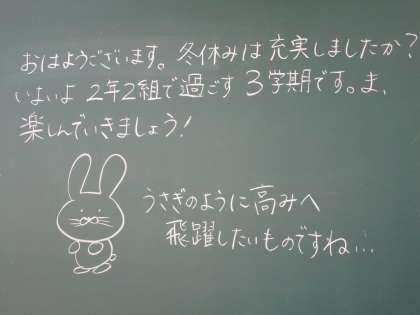 おはようございます。冬休みは充実しましたか?
いよいよ2年2組で過ごす3学期です。ま、
楽しんでいきましょう!
うさぎのように高みへ
飛躍したいものですね...